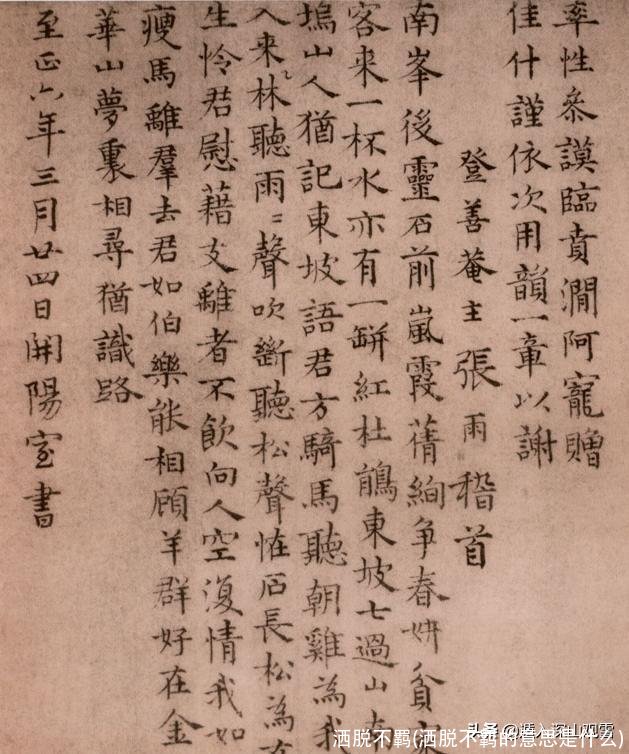 率性叅謨臨賁澗阿寵贈
佳什謹依次用韻一章以謝
登善菴主張雨稽首
南峯後靈石前嵐霞蒨絢争春妍貧
客来一杯水亦有一缾紅杜鵑東坡七過山
塢山人猶記東坡語君方騎馬聽朝雞為我
入来林聽雨〻聲吹斷聽松聲恠石長松為
生怜君慰藉支離者不飲向人空復情我如
瘦馬離羣去君如伯樂能相顧羊群好在金
華山夢裏相尋猶識路
至正六年三月廿四日開陽室書
头条 深山观雪
洒脱不羁(洒脱不羁的意思是什么)